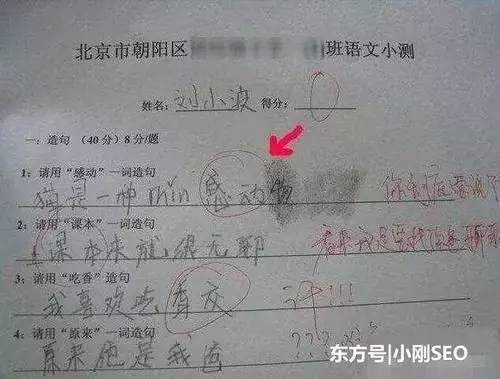 北京市朝阳区 班语文小测
姓名：刘小波 得分：0
一：造句（40分）8分/题
1：请用“感动”一词造句
猫是一种min感动物
2：请用“课本”一词造句
课本来就很无聊
3：请用“吃香”造句
我喜欢吃香蕉
评!!!
4：请用“原来”一词造句
原来他是我爸
???
东方号|小刚SEO